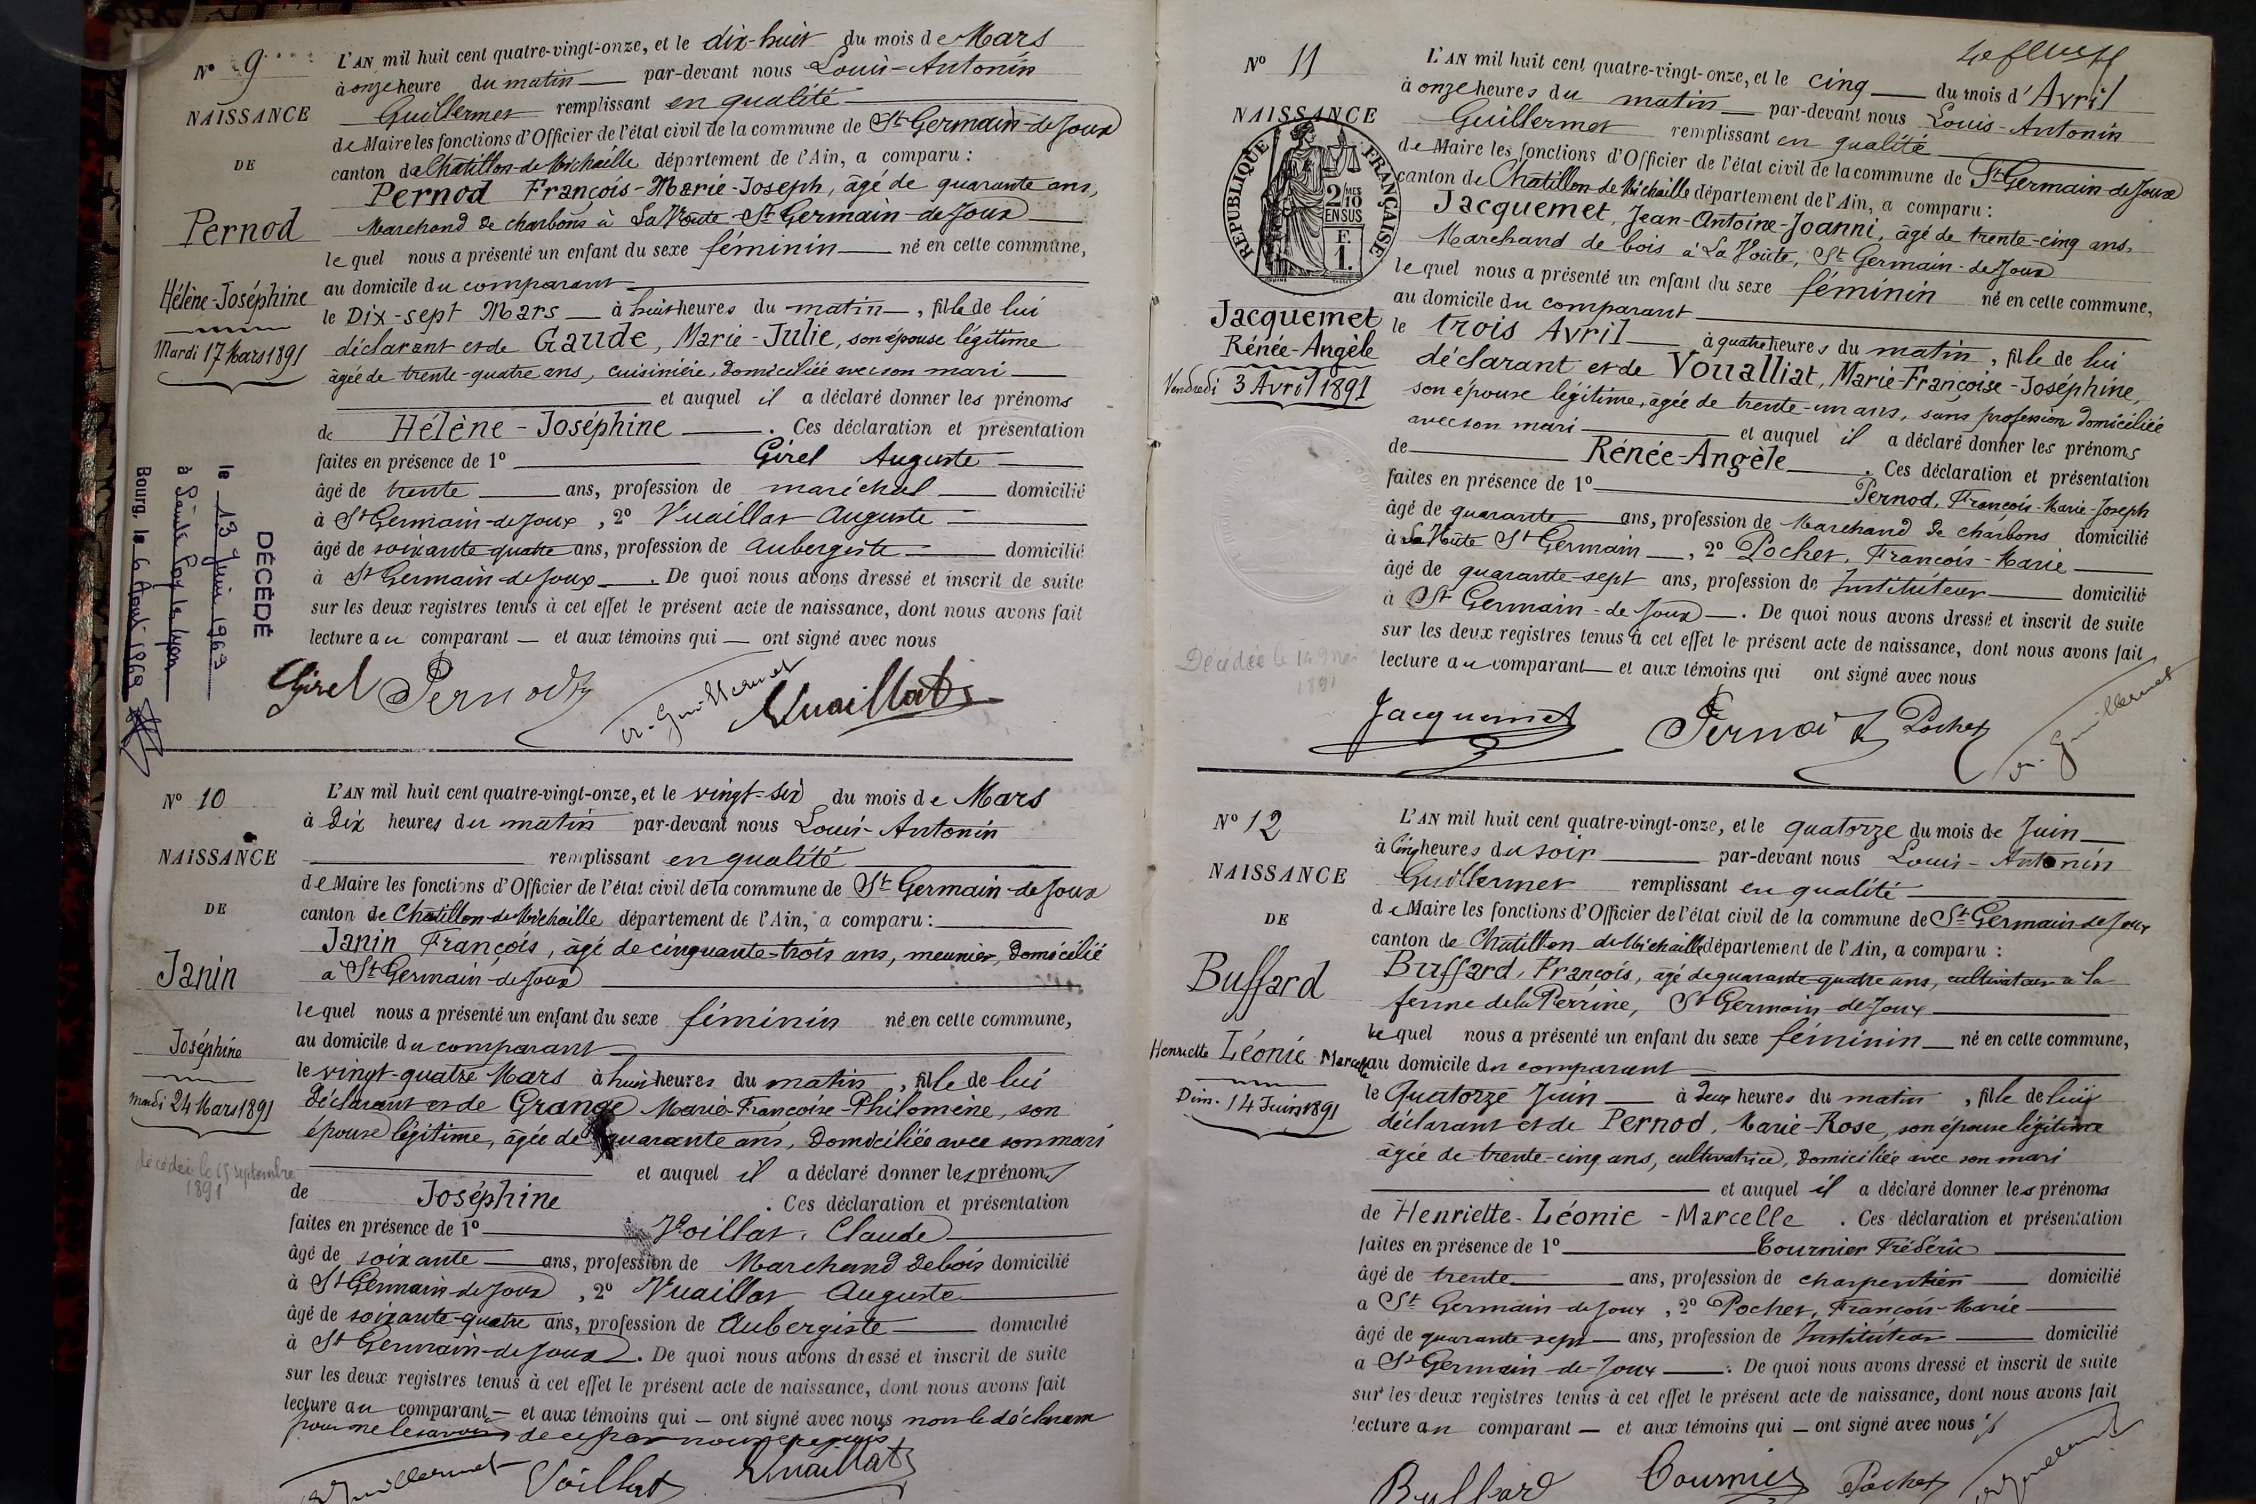 N° 9
NAISSANCE
DE
Pernod
Hélène-Joséphine
Mardi 17 Mars 1891
DÉCÉDÉ
le 13 Juin 1969
à Sainte Foy les Lyon
Bourg, le 6 Août 1969
L'AN mil huit cent quatre-vingt-onze, et le dix-huit du mois de Mars
à onze heure du matin par-devant nous Louis-Antonin
Guillermet remplissant en qualité
de Maire les fonctions d'Officier de l'état civil de la commune de St Germain-de-Joux
canton de Châtillon-de-Michaille département de l'Ain, a comparu :
Pernod François-Marie-Joseph, âgé de quarante ans,
Marchand de charbons à La Voûte St Germain-de-Joux
lequel nous a présenté un enfant du sexe féminin né en cette commune,
au domicile du comparant
le Dix-sept Mars à huit heures du matin, fille de lui
déclarant et de Gaude, Marie-Julie, son épouse légitime
âgée de trente-quatre ans, cuisinière, domiciliée avec son mari
et auquel il a déclaré donner les prénoms
de Hélène-Joséphine. Ces déclaration et présentation
faites en présence de 1° Girel Auguste
âgé de trente ans, profession de maréchal domicilié
à St Germain-de-Joux, 2° Vuaillat Auguste
âgé de soixante-quatre ans, profession de Aubergiste domicilié
à St Germain-de-Joux. De quoi nous avons dressé et inscrit de suite
sur les deux registres tenus à cet effet le présent acte de naissance, dont nous avons fait
lecture au comparant et aux témoins qui ont signé avec nous
Girel Pernod Guillermet Vuaillat
N° 10
NAISSANCE
DE
Janin
Joséphine
mardi 24 Mars 1891
décédée le 15 septembre
1891
L'AN mil huit cent quatre-vingt-onze, et le vingt-six du mois de Mars
à Dix heures du matin par-devant nous Louis-Antonin
remplissant en qualité
de Maire les fonctions d'Officier de l'état civil de la commune de St Germain-de-Joux
canton de Châtillon-de-Michaille département de l'Ain, a comparu :
Janin François, âgé de cinquante-trois ans, meunier, domicilié
à St Germain-de-Joux
lequel nous a présenté un enfant du sexe féminin né en cette commune,
au domicile du comparant
le vingt-quatre Mars à huit heures du matin, fille de lui
Déclarant et de Grange Marie-Françoise-Philomène, son
épouse légitime, âgée de quarante ans, domiciliée avec son mari
et auquel il a déclaré donner les prénoms
de Joséphine. Ces déclaration et présentation
faites en présence de 1° Voillat, Claude
âgé de soixante ans, profession de Marchand de bois domicilié
à St Germain-de-Joux, 2° Vuaillat Auguste
âgé de soixante-quatre ans, profession de Aubergiste domicilié
à St Germain-de-Joux. De quoi nous avons dressé et inscrit de suite
sur les deux registres tenus à cet effet le présent acte de naissance, dont nous avons fait
lecture au comparant et aux témoins qui ont signé avec nous non le déclarant
pour ne le savoir de ce par nous requis
Guillermet Voillat Vuaillat
N° 11
NAISSANCE
RÉPUBLIQUE FRANÇAISE
2/10 MES
EN SUS
F.
1.
Jacquemet
Rénée-Angèle
Vendredi 3 Avril 1891
Décédée le 14 mai
1891
L'AN mil huit cent quatre-vingt-onze, et le cinq du mois d'Avril
à onze heures du matin par-devant nous Louis-Antonin
Guillermet remplissant en qualité
de Maire les fonctions d'Officier de l'état civil de la commune de St Germain-de-Joux
canton de Châtillon-de-Michaille département de l'Ain, a comparu :
Jacquemet, Jean-Antoine-Joanni, âgé de trente-cinq ans,
Marchand de bois à La Voûte, St Germain-de-Joux
lequel nous a présenté un enfant du sexe féminin né en cette commune,
au domicile du comparant
le trois Avril à quatre heures du matin, fille de lui
déclarant et de Voualliat, Marie-Françoise-Joséphine,
son épouse légitime, âgée de trente-un ans, sans profession domiciliée
avec son mari et auquel il a déclaré donner les prénoms
de Rénée-Angèle. Ces déclaration et présentation
faites en présence de 1° Pernod, François-Marie-Joseph
âgé de quarante ans, profession de Marchand de charbons domicilié
à La Voûte St Germain, 2° Pochet, François-Marie
âgé de quarante-sept ans, profession de Instituteur domicilié
à St Germain-de-Joux. De quoi nous avons dressé et inscrit de suite
sur les deux registres tenus à cet effet le présent acte de naissance, dont nous avons fait
lecture au comparant et aux témoins qui ont signé avec nous
Jacquemet Pernod Pochet Guillermet
N° 12
NAISSANCE
DE
Buffard
Henriette Léonie Marcelle
Dim. 14 Juin 1891
L'AN mil huit cent quatre-vingt-onze, et le quatorze du mois de Juin
à cinq heures du soir par-devant nous Louis-Antonin
Guillermet remplissant en qualité
de Maire les fonctions d'Officier de l'état civil de la commune de St Germain de Joux
canton de Châtillon-de-Michaille département de l'Ain, a comparu :
Buffard, François, âgé de quarante-quatre ans, cultivateur à la
ferme de la Perrine, St Germain-de-Joux
lequel nous a présenté un enfant du sexe féminin né en cette commune,
au domicile du comparant
le Quatorze Juin à deux heures du matin, fille de lui
déclarant et de Pernod, Marie-Rose, son épouse légitime
âgée de trente-cinq ans, cultivatrice, domiciliée avec son mari
et auquel il a déclaré donner les prénoms
de Henriette-Léonie-Marcelle. Ces déclaration et présentation
faites en présence de 1° Tournier Frédéric
âgé de trente ans, profession de charpentier domicilié
à St Germain-de-Joux, 2° Pochet, François-Marie
âgé de quarante-sept ans, profession de Instituteur domicilié
à St Germain-de-Joux. De quoi nous avons dressé et inscrit de suite
sur les deux registres tenus à cet effet le présent acte de naissance, dont nous avons fait
lecture au comparant et aux témoins qui ont signé avec nous
Buffard Tournier Pochet Guillermet